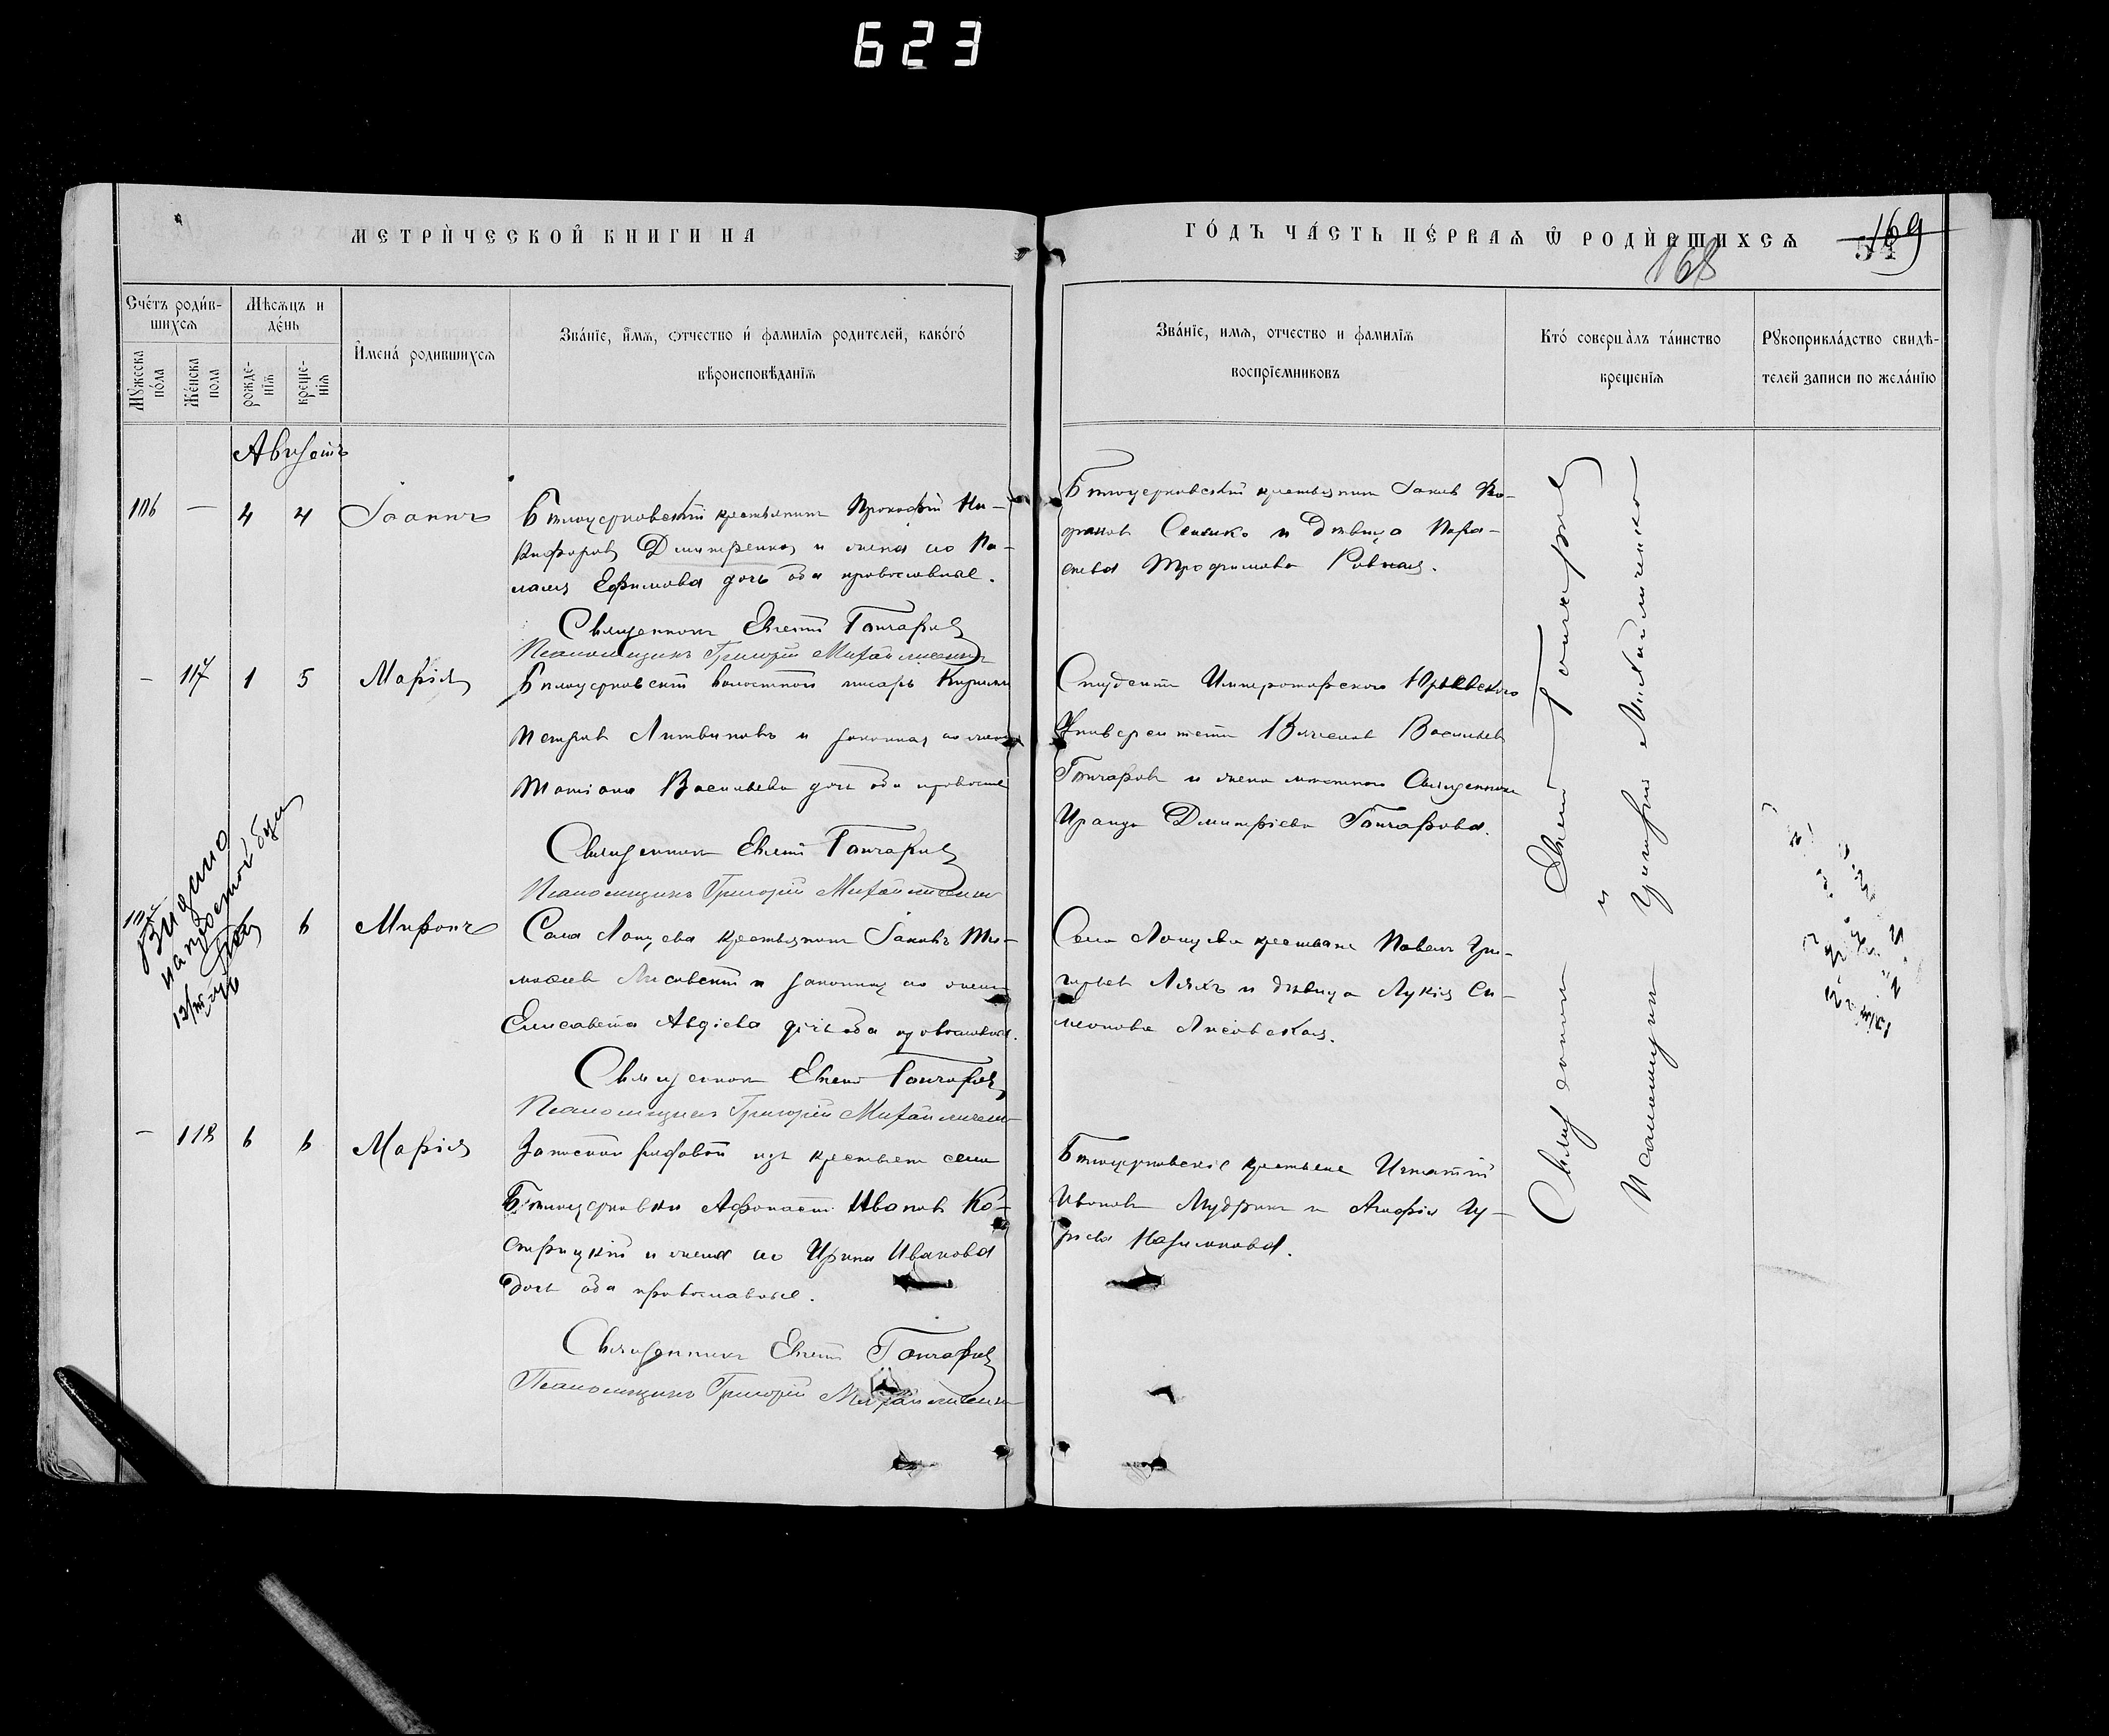 623
МЕТРИ́ЧЕСКОЙ КНИГИ НА
ГО́ДЪ ЧА́СТЬ ПЕ́РВАѦ Ѿ РОДИ́ВШИХСѦ
169
54
168
Сче́тъ роди́в-
шихсѧ
Мѣ́сѧцъ и
де́нь
Мꙋ́жеска
по́ла
Же́нска
пола
рожде-
нїѧ
креще-
нїѧ
И҆мена́ родившихсѧ
Зва́нїе, и҆́мѧ, ѻтчество и҆ фамилїѧ родителей, како́гѡ
вѣроисповѣ́данїѧ
Зва́нїе, имѧ, отчество и фамилїѧ
воспрїемниковъ
Кто́ соверша̀лъ та́инство
крещенїѧ
Рꙋкоприкла́дство свидѣ-
телей записи по жела́нїю
Августъ
106 — 4 4 Іоаннъ
Бѣлоцерковскій крестьянинъ Прокофій Ни-
кифоровъ Дмитренко и жена его Пе-
лагея Ефимова дочь оба православные.
Священникъ Гончаровъ
Псаломщикъ Григорій Михайличенко
Бѣлоцерковскій крестьянинъ Іаковъ
Сененко и дѣвица Пара-
скева Трофимова Ровная.
— 117 1 5 Марія
Бѣлоцерковскій волостной писарь Кириллъ
Петровъ Литвиновъ и законная его жена
Татіана Васильева дочь оба православ
Священникъ Гончаровъ
Псаломщикъ Григорій Михайличенко
Студентъ Императорского Юрьевского
Университета Вячеславъ Васильевъ
Гончаровъ и жена мѣстного Священника
Ираида Димитріева Гончарова.
Видано
6 Миронъ
Села Лопцева крестьянинъ Іаковъ Ти-
мофеевъ Лисовскій и законная его жена
Елисавета Авдіева дочь оба православные.
Священникъ Гончаровъ
Псаломщикъ Григорій Михайличенко
Села Лопцева крестьяне Павелъ Гри-
горьевъ Ляхъ и дѣвица Лукія Си-
меонова Лисовская.
— 118 6 6 Марія
Запасной рядовой изъ крестьянъ села
Бѣлоцерковки Афанасій Ивановъ Ко-
стрицкій и жена его Ирина Иванова
дочь оба православные.
Священникъ Гончаровъ
Псаломщикъ Григорій Михайличенко
Бѣлоцерковскіе крестьяне Игнатій
Ивановъ Мудрикъ и Агафія Гу-
рьева
Священникъ Гончаровъ
и
Псаломщикъ Григорій Михайличенко